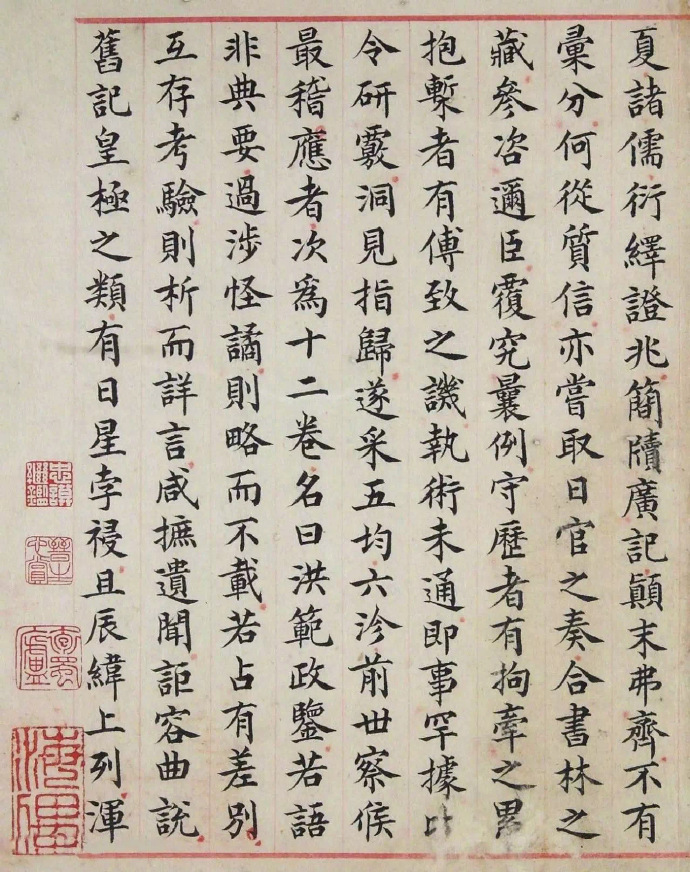 夏諸儒衍繹證兆簡牘廣記顛末弗齊不有
彙分何從質信亦嘗取日官之奏合書林之
藏參咨邇臣覆究曩例守歷者有拘牽之累
抱槧者有傅致之譏執術未通即事罕據比
令研覈洞見指歸遂采五均六沴前丗察候
最稽應者次爲十二卷名曰洪範政鑒若語
非典要過涉怪譎則略而不載若占有差別
互存考驗則析而詳言咸摭遺聞詎容曲說
舊記皇極之類有日星孛祲且辰緯上列渾
忠謨繼鑑
晉生心賞